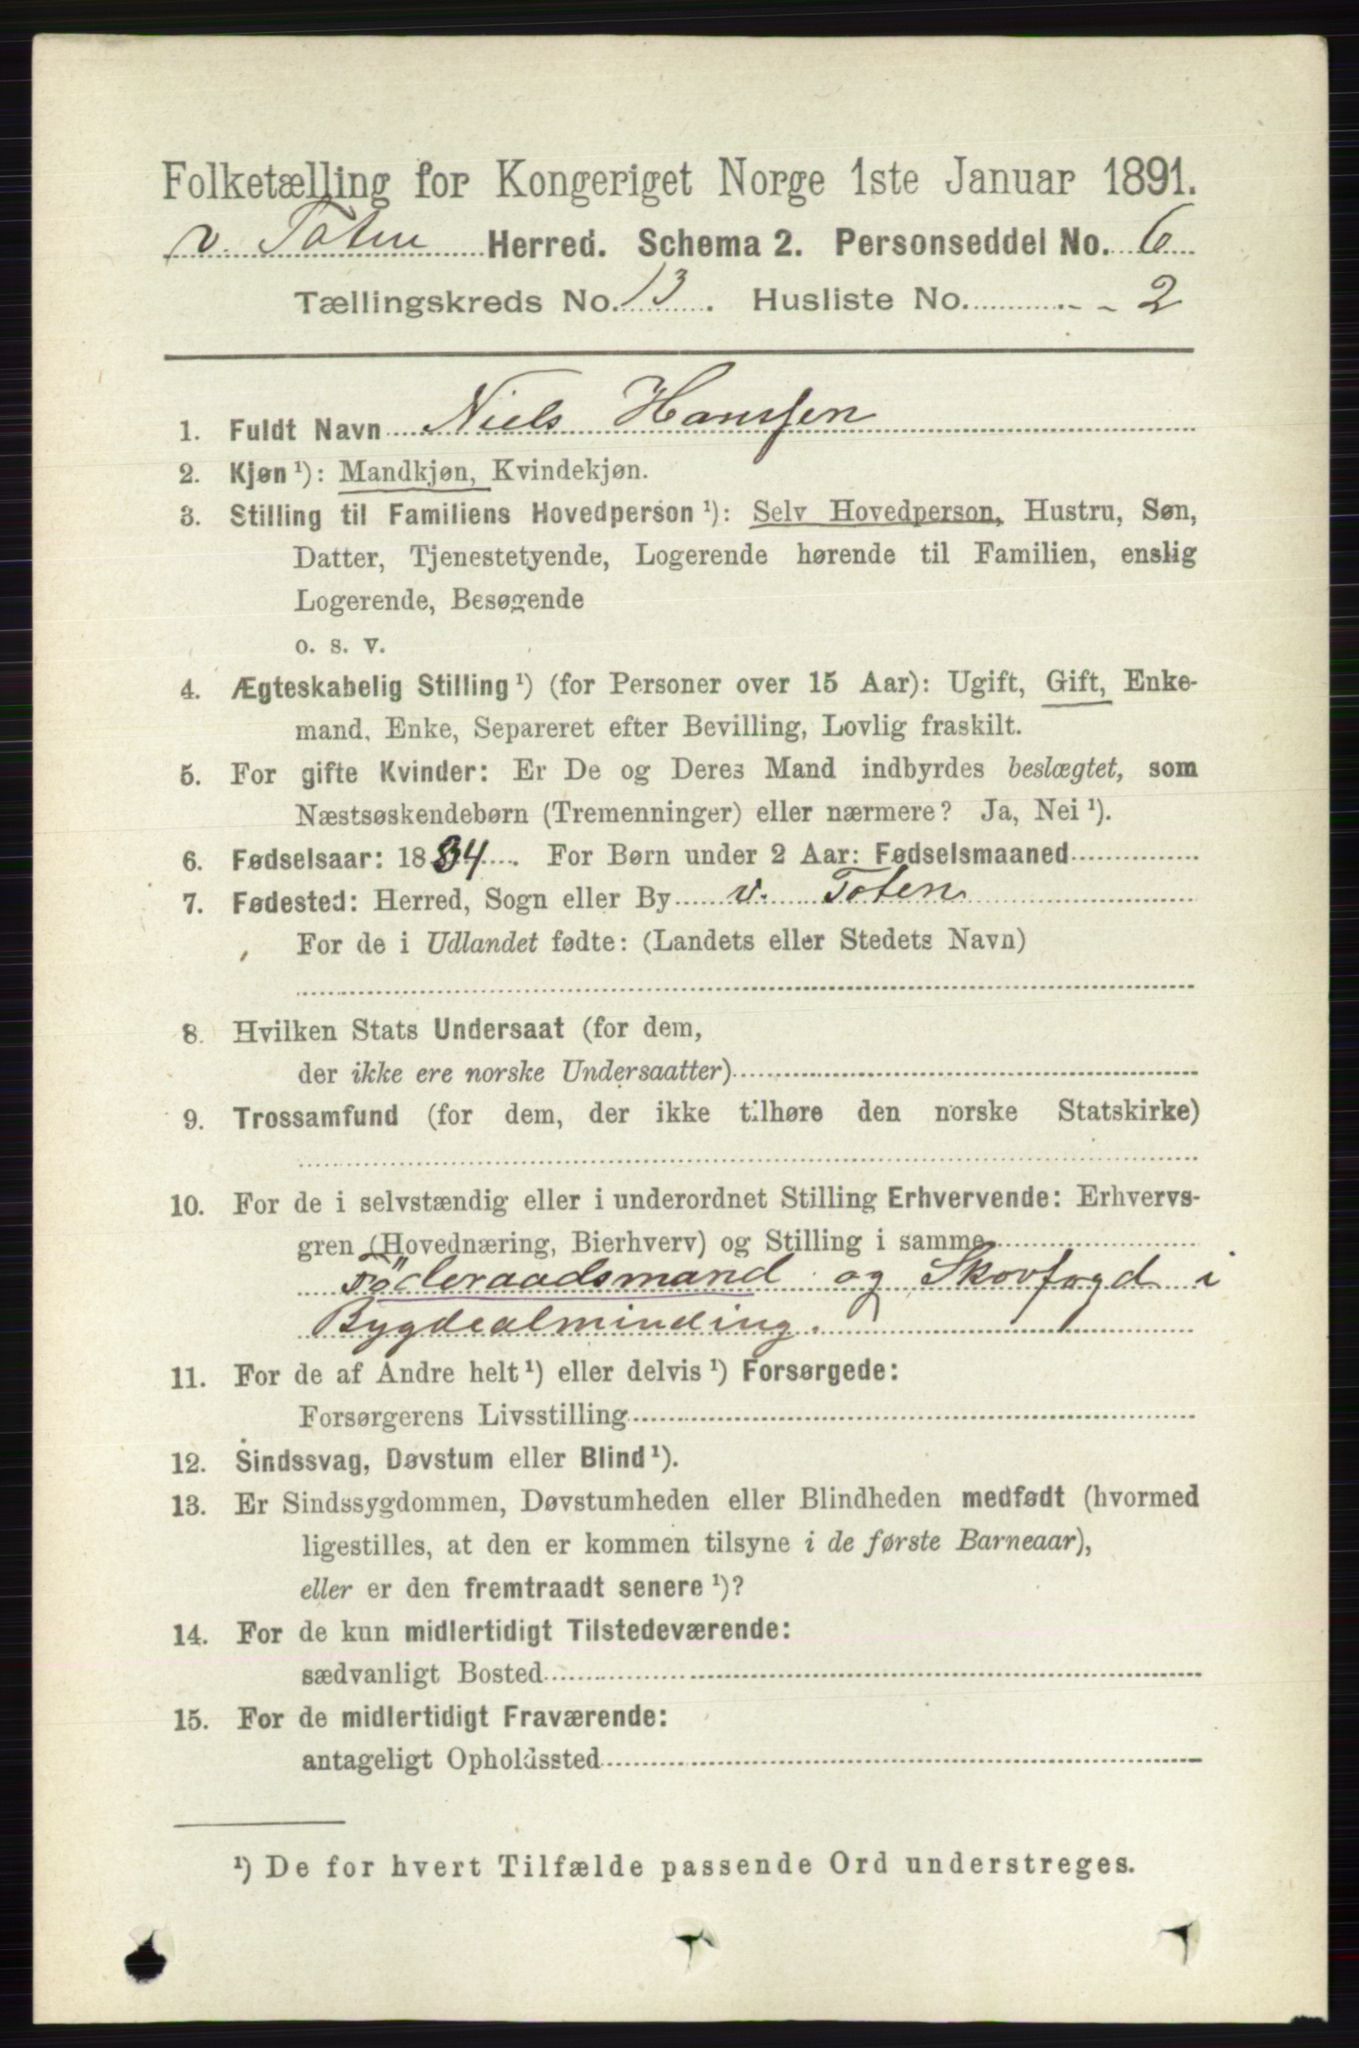 Folketælling for Kongeriget Norge 1ste Januar 1891.
v. Toten Herred. Schema 2. Personseddel No. 6
Tællingskreds No. 13. Husliste No. 2
1. Fuldt Navn Niels Hanssen
2. Kjøn ¹): Mandkjøn, Kvindekjøn.
3. Stilling til Familiens Hovedperson ¹): Selv Hovedperson, Hustru, Søn,
Datter, Tjenestetyende, Logerende hørende til Familien, enslig
Logerende, Besøgende
o. s. v.
4. Ægteskabelig Stilling ¹) (for Personer over 15 Aar): Ugift, Gift, Enke-
mand, Enke, Separeret efter Bevilling, Lovlig fraskilt.
5. For gifte Kvinder: Er De og Deres Mand indbyrdes beslægtet, som
Næstsøskendebørn (Tremenninger) eller nærmere? Ja, Nei ¹).
6. Fødselsaar: 1834. For Børn under 2 Aar: Fødselsmaaned
7. Fødested: Herred, Sogn eller By v. Toten
For de i Udlandet fødte: (Landets eller Stedets Navn)
8. Hvilken Stats Undersaat (for dem,
der ikke ere norske Undersaatter)
9. Trossamfund (for dem, der ikke tilhøre den norske Statskirke)
10. For de i selvstændig eller i underordnet Stilling Erhvervende: Erhvervs-
gren (Hovednæring, Bierhverv) og Stilling i samme
Föderaadsmand og Skovfogd i
Bygdealminding.
11. For de af Andre helt ¹) eller delvis ¹) Forsørgede:
Forsørgerens Livsstilling
12. Sindssvag, Døvstum eller Blind ¹).
13. Er Sindssygdommen, Døvstumheden eller Blindheden medfødt (hvormed
ligestilles, at den er kommen tilsyne i de første Barneaar),
eller er den fremtraadt senere ¹)?
14. For de kun midlertidigt Tilstedeværende:
sædvanligt Bosted
15. For de midlertidigt Fraværende:
antageligt Opholdssted
¹) De for hvert Tilfælde passende Ord understreges.